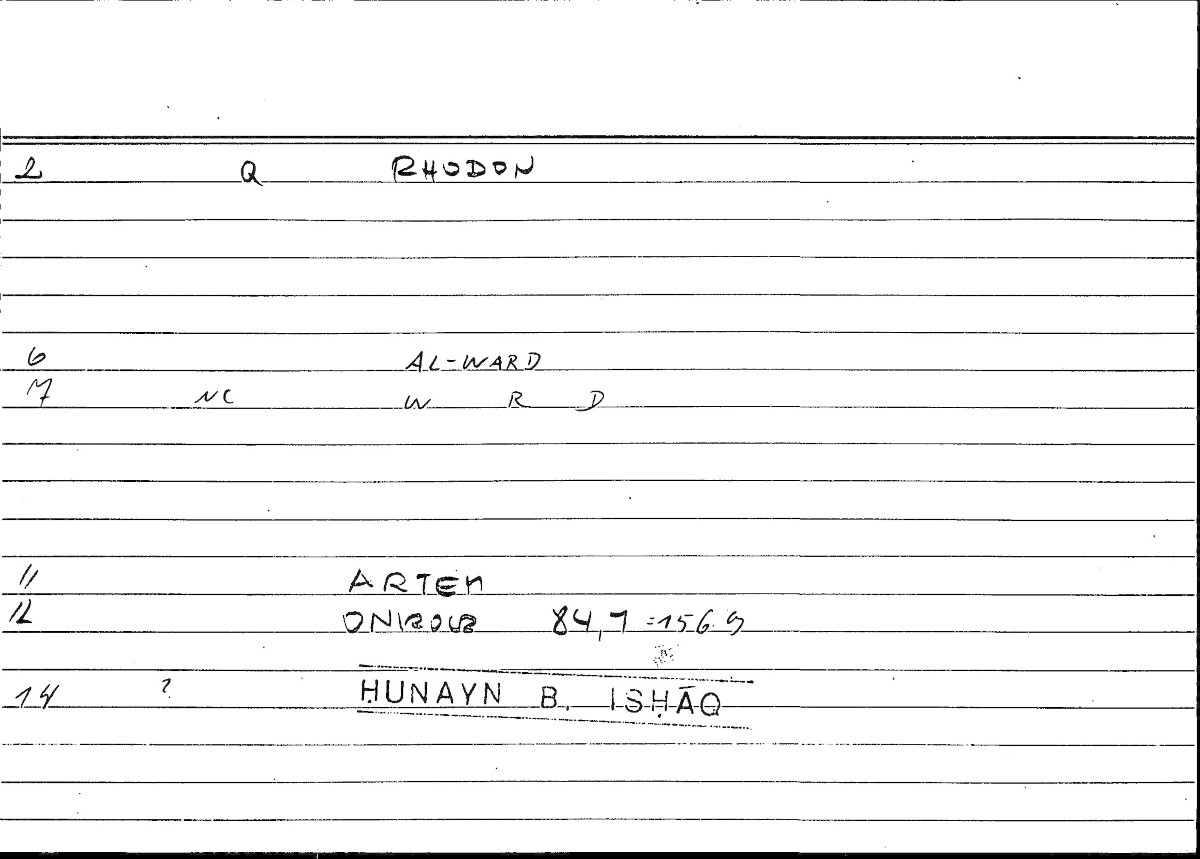 2 Q RHODON
6 AL-WARD
7 NC W R D
11 ARTEM
12 ONIROCR 84,7 =156.9
14 ? ḤUNAYN B. ISḤĀQ